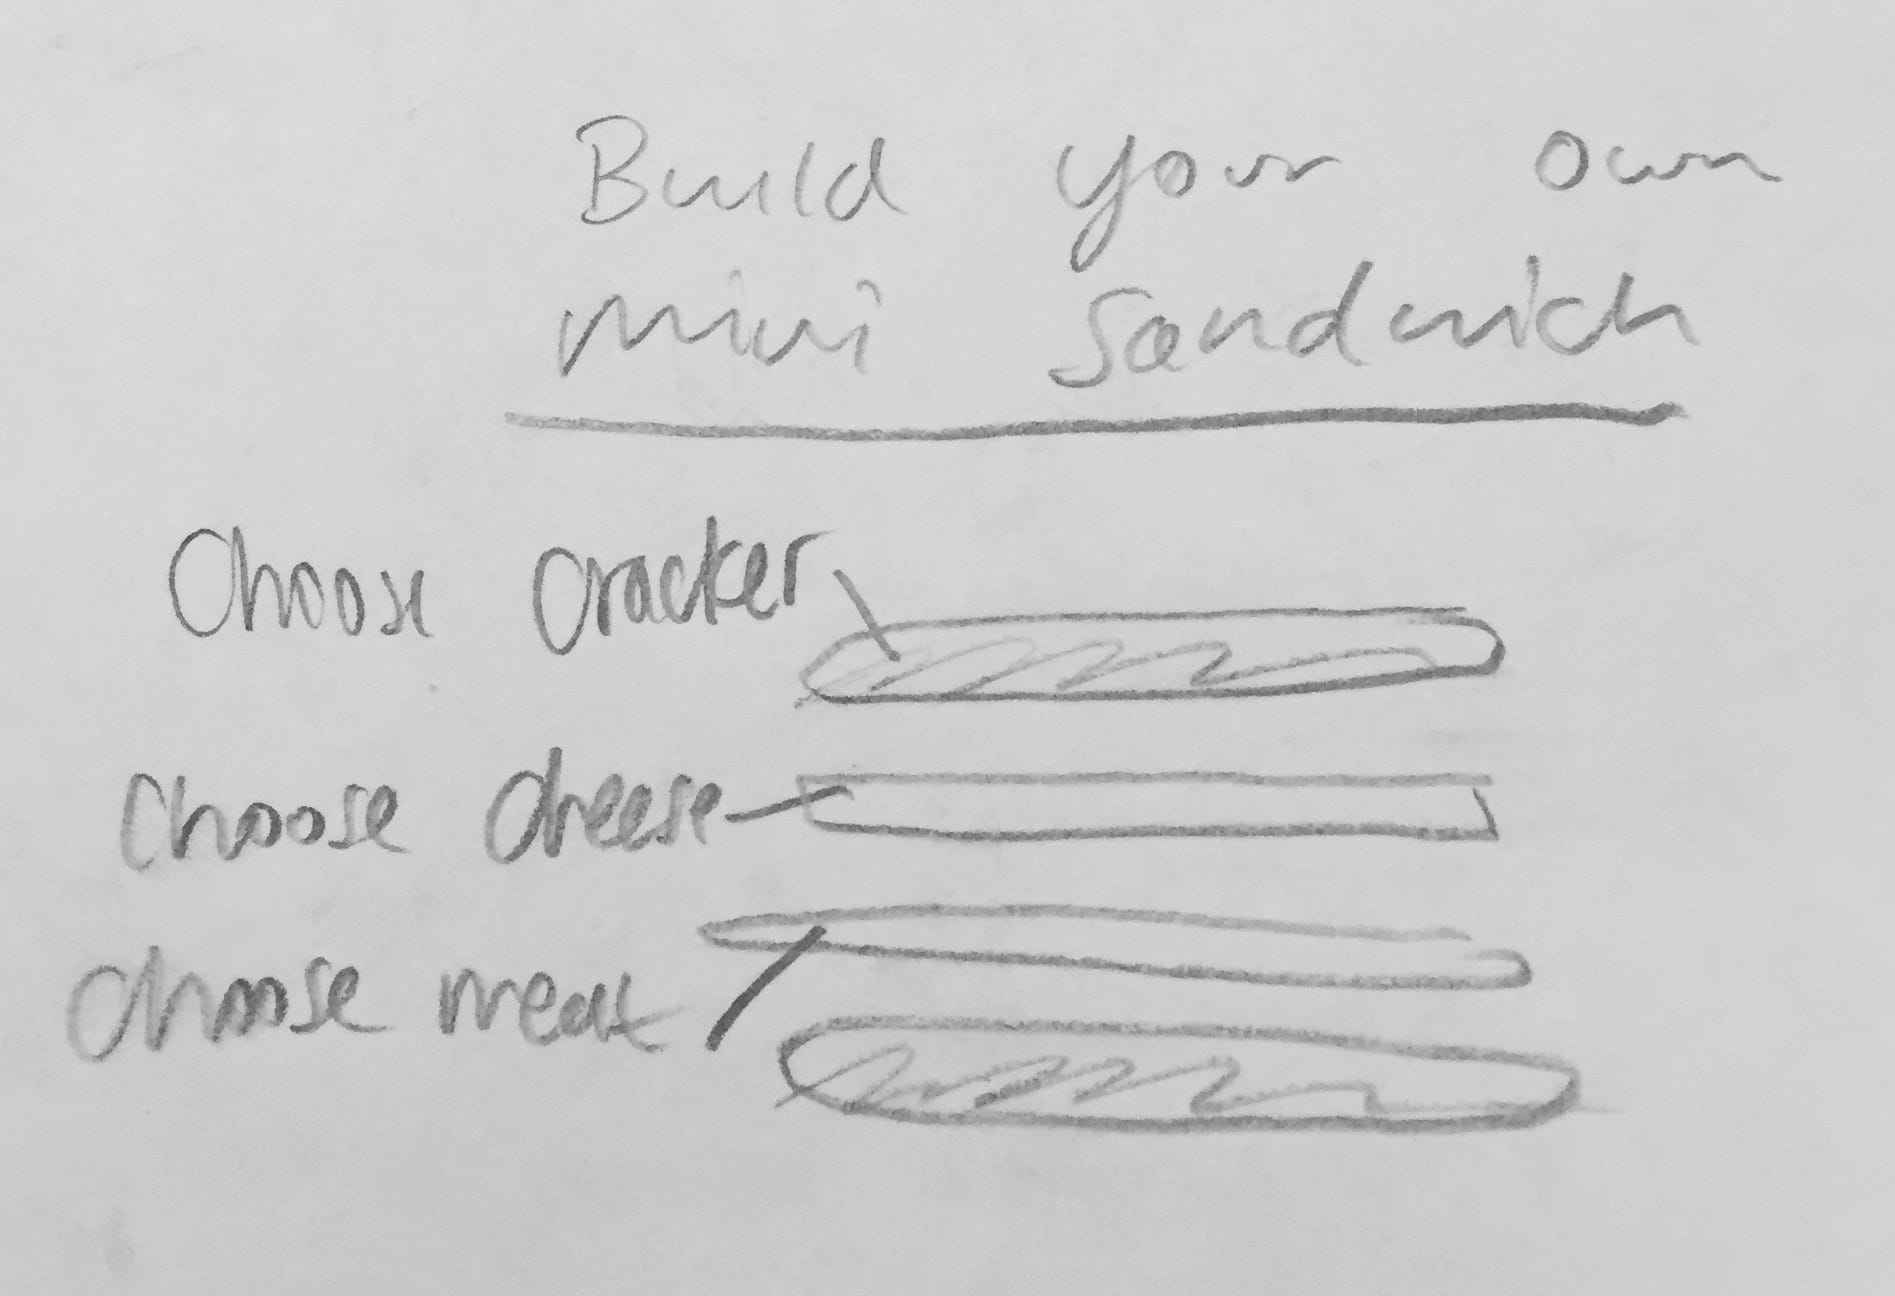 Build your own
mini sandwich
Choose cracker
Choose cheese
Choose meat